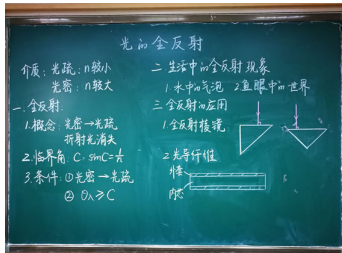 光的全反射
介质：光疏：n较小
光密：n较大
一.全反射
1.概念：光密→光疏
折射光消失
2.临界角 C. sinC=1/n
3.条件：①光密→光疏
② θ入≥C
二.生活中的全反射现象
1.水中的气泡 2.鱼眼中的世界
三.全反射的应用
1.全反射棱镜
2.光导纤维
外套
内芯